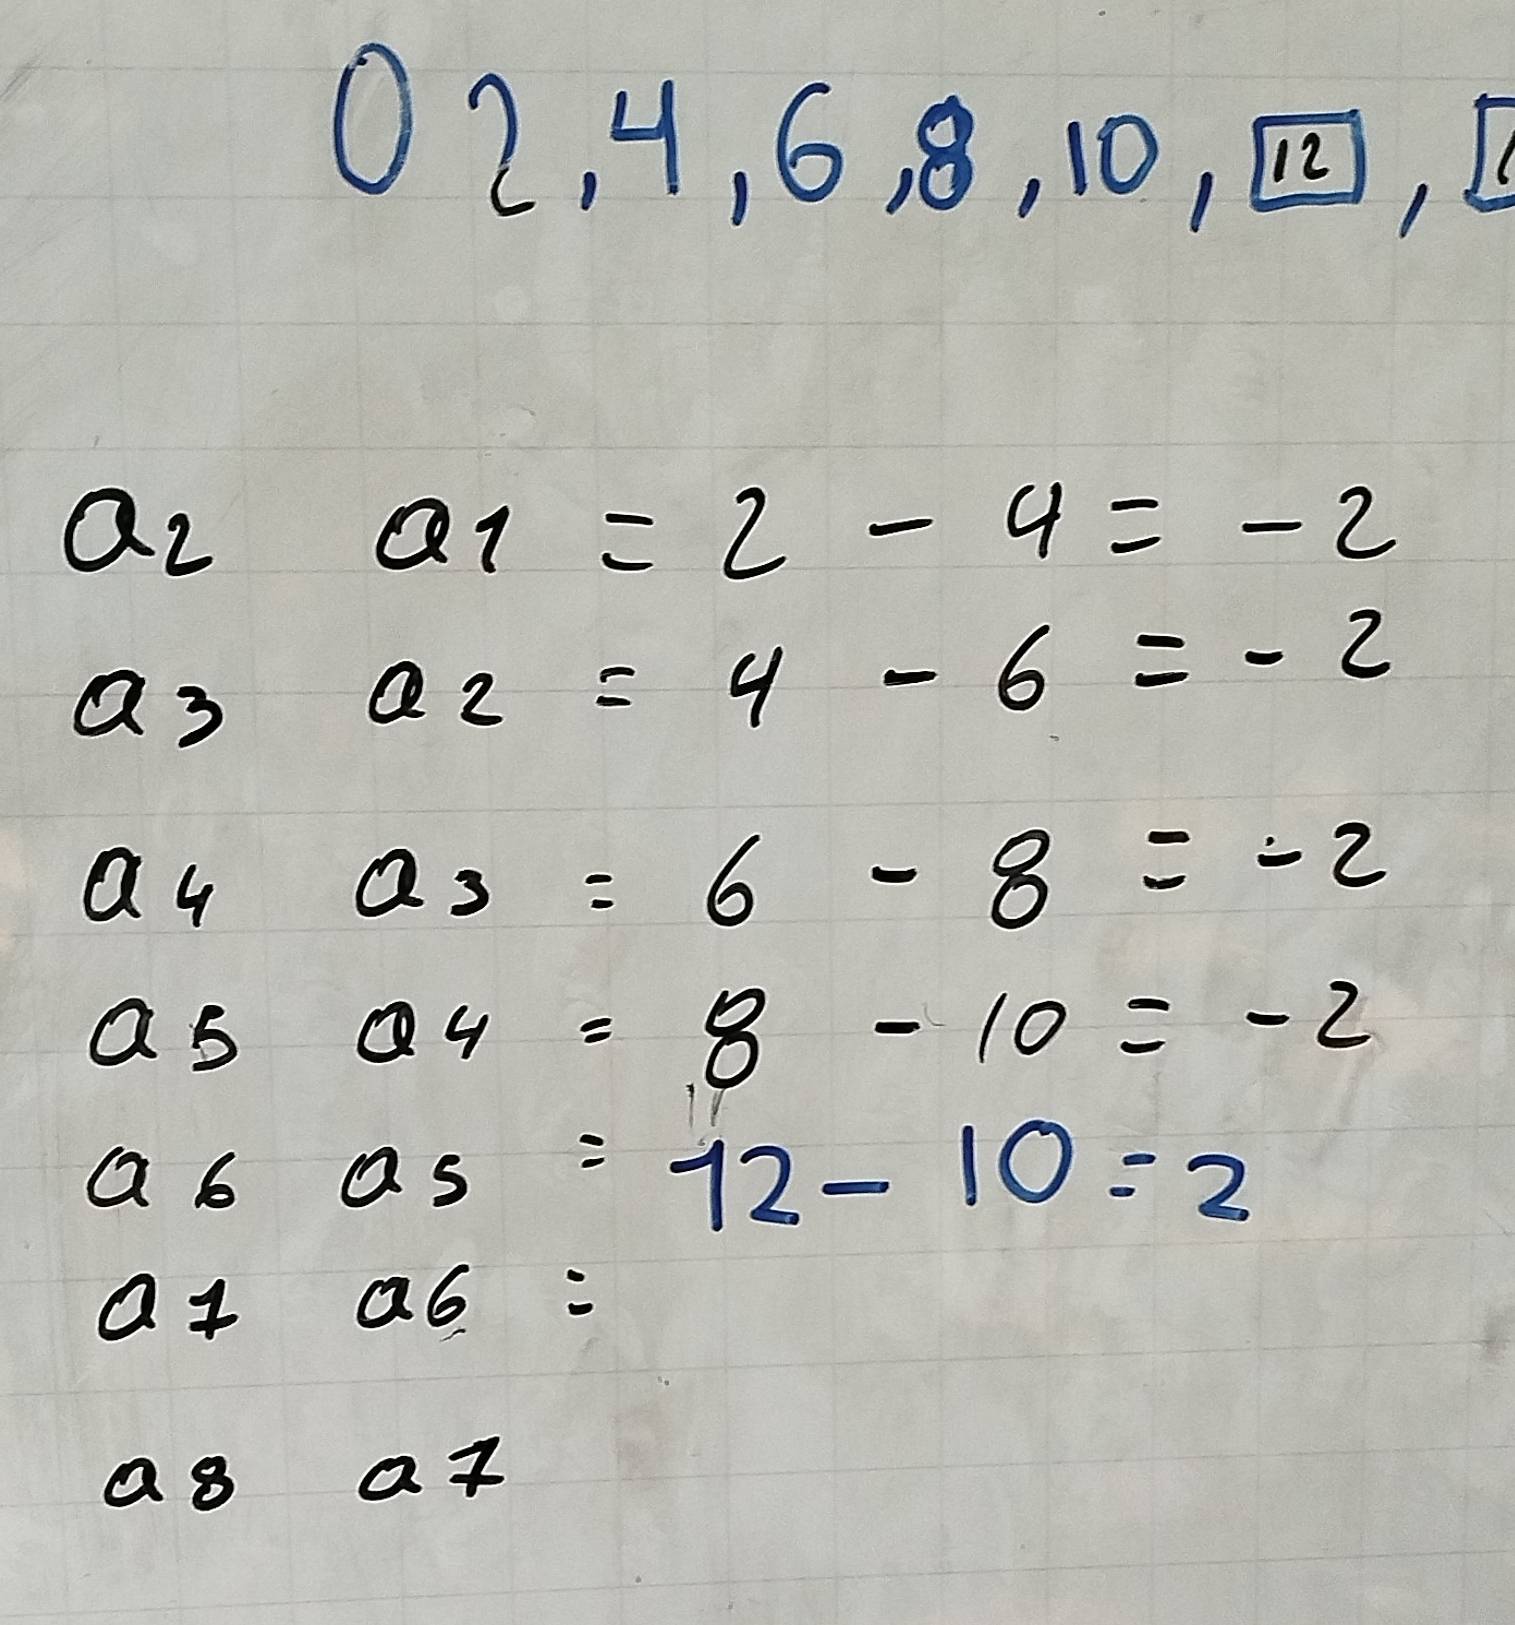 0 2, 4, 6, 8, 10, 12,
a2 a1 = 2 - 4 = -2
a3 a2 = 4 - 6 = -2
a4 a3 = 6 - 8 = -2
a5 a4 = 8 - 10 = -2
a6 a5 = 12 - 10 = 2
a7 a6 =
a8 a7